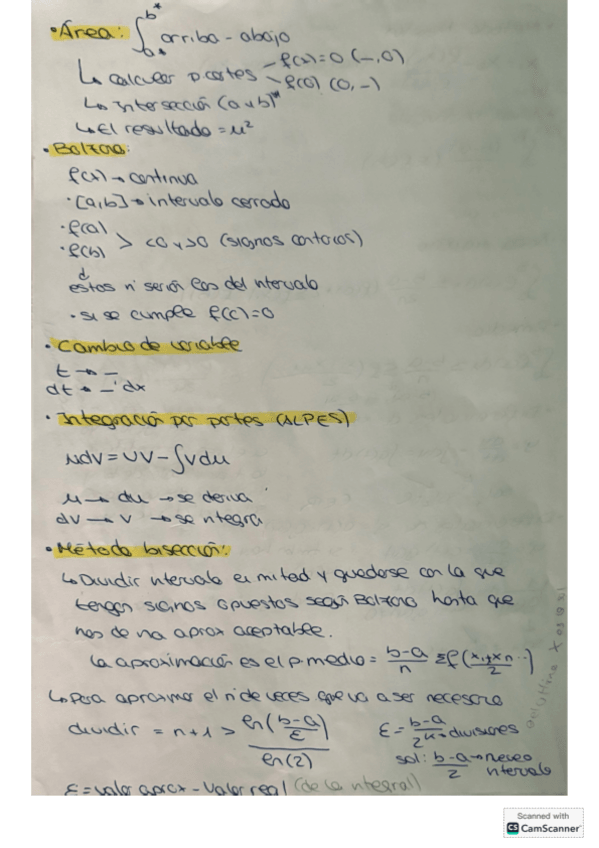 • Área: ∫ₐ*ᵇ* arriba - abajo
↳ calcular p. cortes f(x)=0 (-,0)
f(0) (0,-)
↳ Intersección (a y b)*
↳ El resultado = u²
• Bolzano:
f(x) → continua
• [a,b] → intervalo cerrado
• f(a)
• f(b) > <0 y >0 (signos contarios)
↓
estos nº serán los del intervalo
• si se cumple f(c)=0
• Cambio de variable
t → _
dt → _' dx
• Integración por partes (ALPES)
udv = uv - ∫vdu
u → du → se deriva
dv → v → se integra
• Método bisección:
↳ Dividir intervalo en mitad y quedarse con la que
tengan signos opuestos según Bolzano hasta que
nos de una aprox aceptable.
La aproximación es el p. medio = b-a/n Σf(x₁+xn../2)
↳ Para aproximar el nº de veces que va a ser necesario
dividir = n+1 > ln(b-a/ε)/ln(2) ε = b-a/2ⁿ → divisiones
sol: b-a/2 → nuevo
intervalo
ε = valor aprox - valor real (de la integral)
Scanned with
CS CamScanner